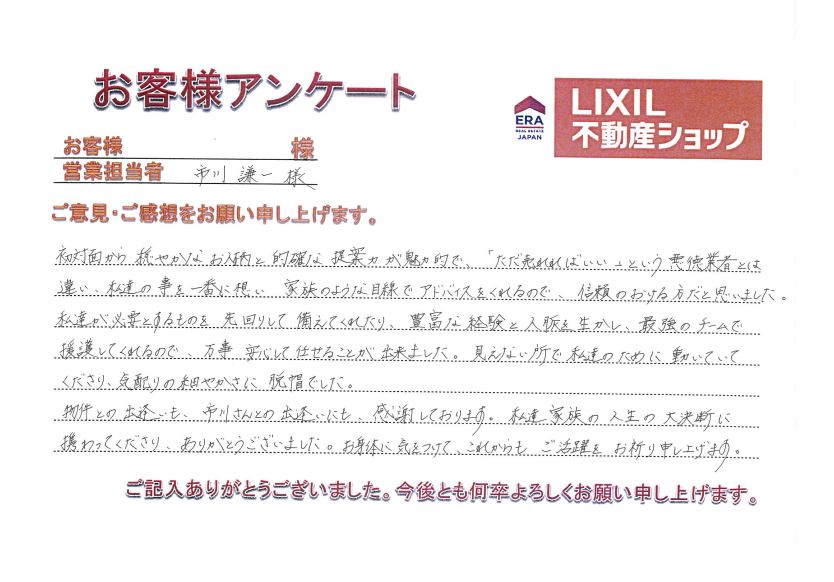 お客様アンケート
ERA
REAL ESTATE
JAPAN
LIXIL
不動産ショップ
お客様 様
営業担当者 市川 謙一 様
ご意見・ご感想をお願い申し上げます。
初対面から 穏やかな お人柄と 的確な 提案力 が魅力的で、「ただ売れればいい」という 悪徳業者とは
違い、私達の事を一番に想い 家族のような目線で アドバイスをくれるので、信頼のおける方だと思いました。
私達が必要とするものを 先回りして 備えてくれたり、豊富な 経験と 人脈を生かし、最強のチームで
援護してくれるので、万事 安心して任せることが出来ました。見えない所で私達のために 動いていて
くださり、気配りの細やかさに 脱帽でした。
物件との出逢いも、市川さんとの出逢いにも、感謝しております。私達 家族の 人生の大決断に
携わってくださり、ありがとうございました。お身体に気をつけて、これからも ご活躍を お祈り申し上げます。
ご記入ありがとうございました。今後とも何卒よろしくお願い申し上げます。